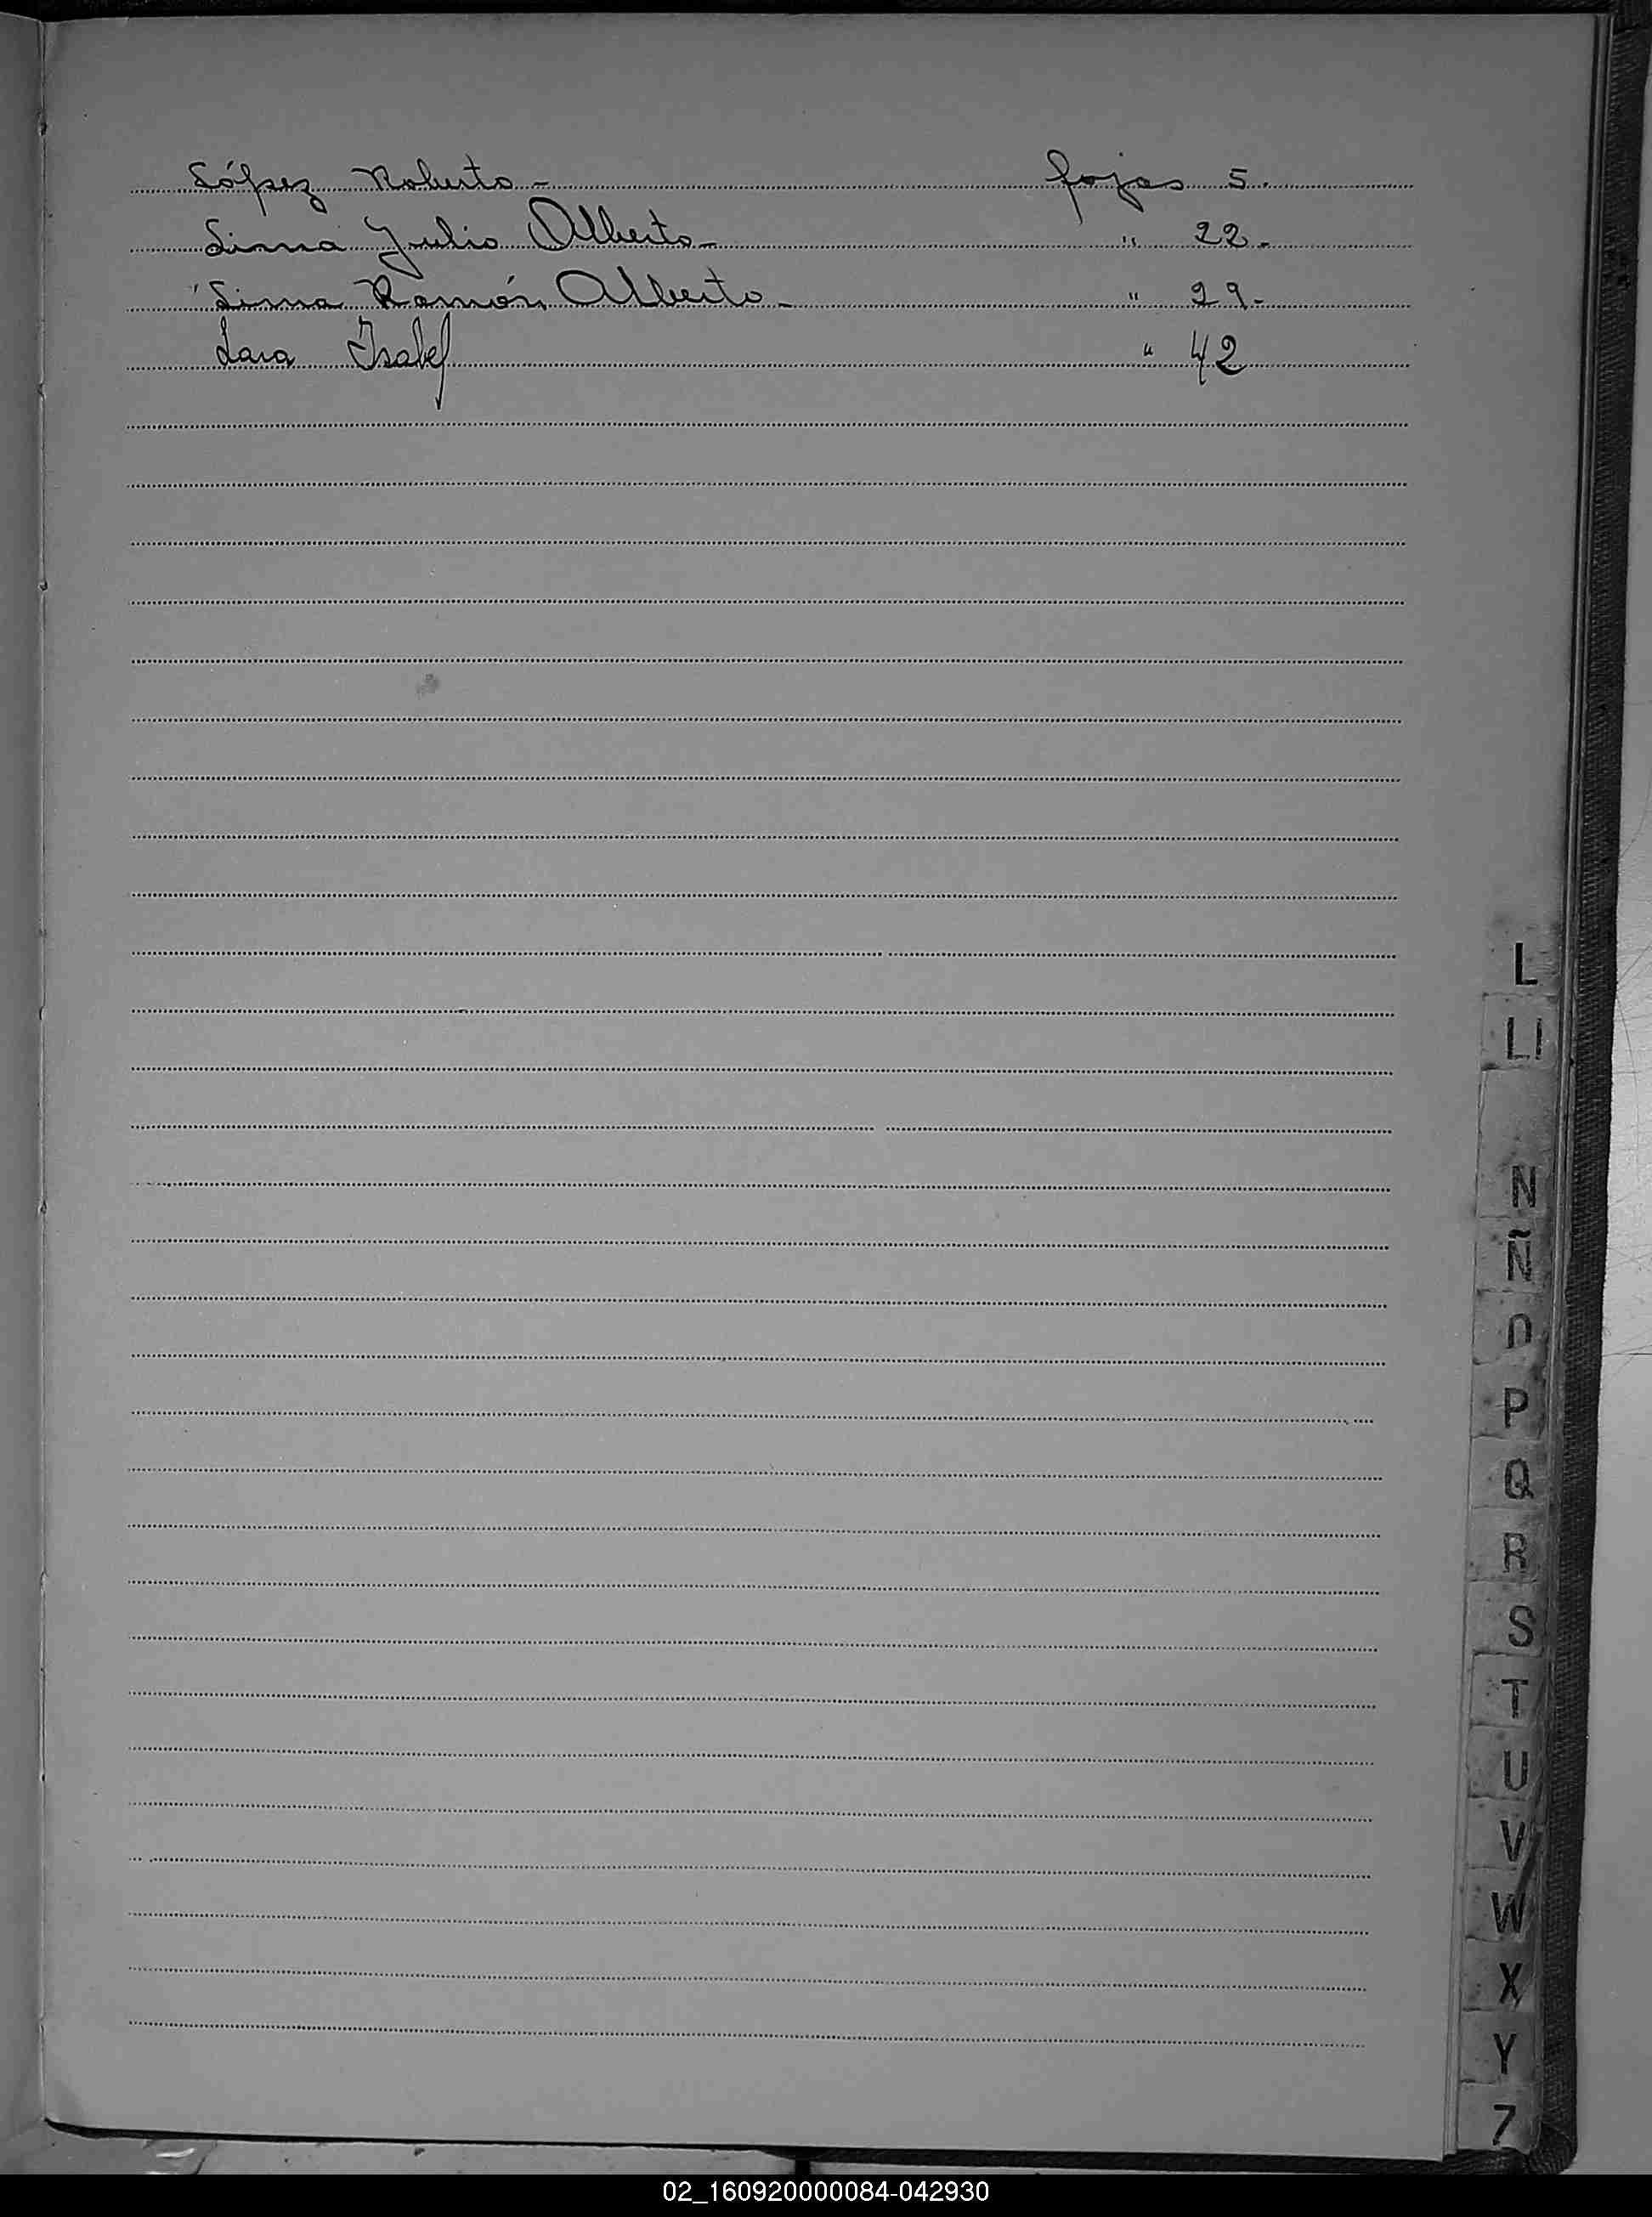 López Roberto - fojas 5.
Lima Julio Alberto - " 22 -
Lima Ramón Alberto - " 29 -
Lara Isabel " 42
L
Ll
N
Ñ
O
P
Q
R
S
T
U
V
W
X
Y
Z
02_160920000084-042930